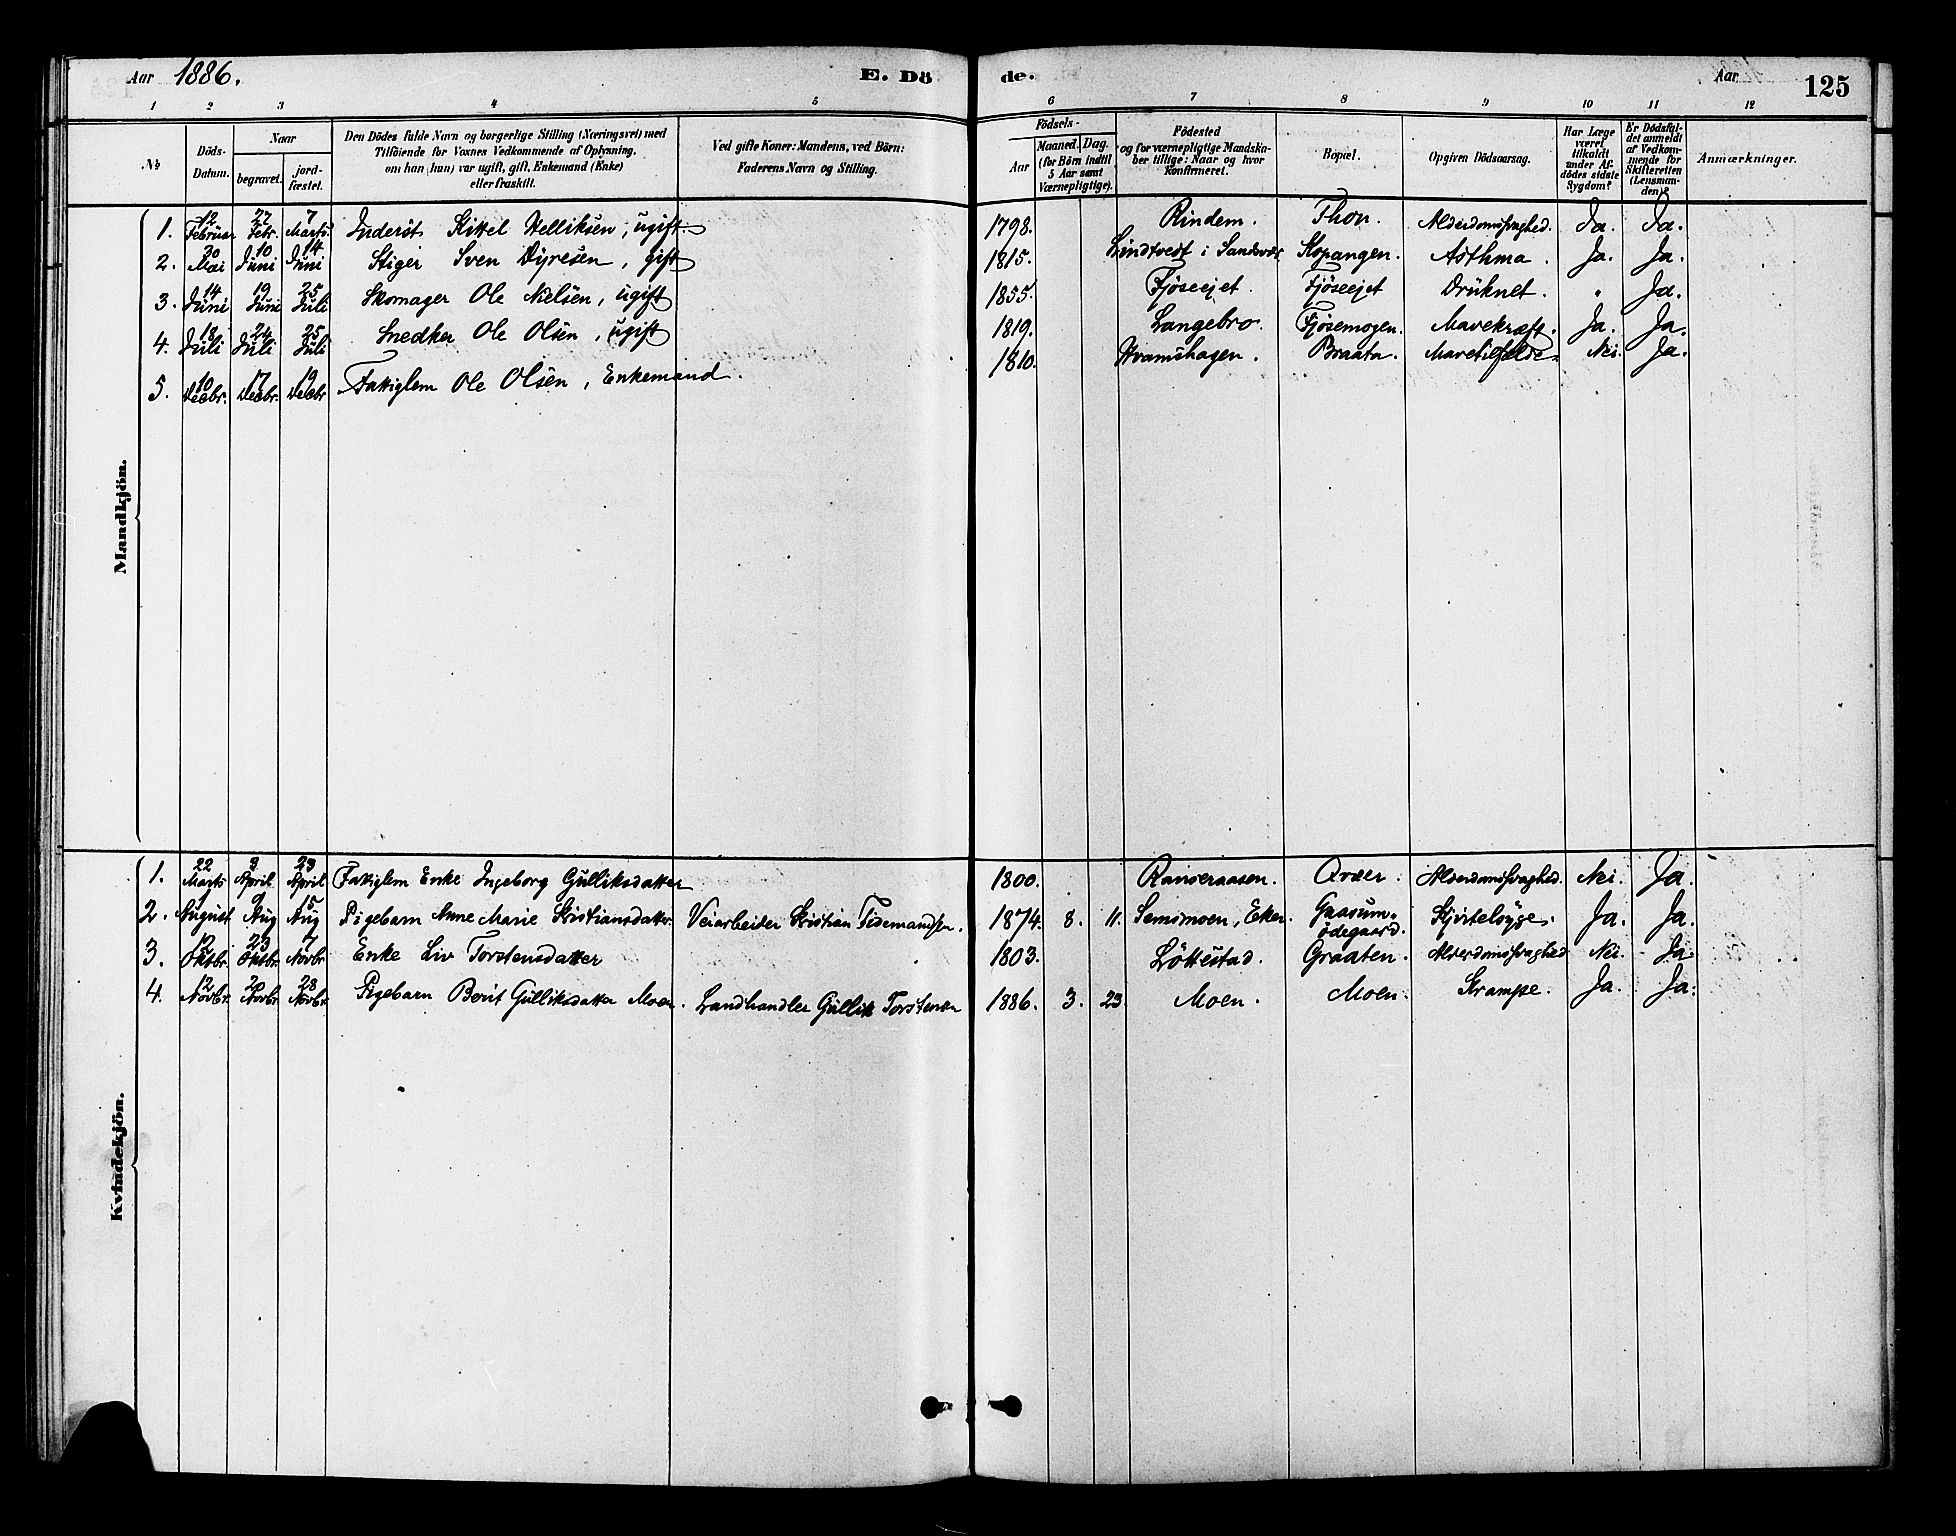 Aar 1886. E. Dö de. Aar 125
1 2 3 4 5 6 7 8 9 10 11 12
No
Döds-Datum.
Naar
begravet.
jord-fæstet.
Den Dödes fulde Navn og borgerlige Stilling (Næringsvei) med
Tilföiende for Voxnes Vedkommende af Oplysning,
om han (hun) var ugift, gift, Enkemand (Enke)
eller fraskilt.
Ved gifte Koner: Mandens, ved Börn:
Faderens Navn og Stilling.
Födsels-
Aar
Maaned. Dag.
(for Börn indtil
5 Aar samt
Værnepligtige).
Födested
og for værnepligtige Mandska-
ber tillige: Naar og hvor
konfirmeret.
Bopæl.
Opgiven Dödsaarsag.
Har Læge
været
tilkaldt
under Af-
dödes sidste
Sygdom?
Er Dödsfal-
det anmeldt
af Vedkom-
mende for
Skifteretten
(Lensman-
den)?
Anmærkninger.
Mandkjön.
1. 12 Februar 27 Febr. 7 Marts Inderst Kittel Helliksen, ugift. 1798. Rindem. Thon. Alderdomssvaghed. Ja. Ja.
2. 30 Mai 10 Juni 14 Juni Stiger Sven Dyresen, gift 1815. Lindtvedt i Sandsvær Kopangen. Asthma. Ja. Ja.
3. 14 Juni 19 Juni 25 Juli Skomager Ole Nielsen, ugift 1855. Fjöseejet. Fjöseejet Druknet. " Ja.
4. 18 Juli 24 Juli 25 Juli Snedker Ole Olsen, ugift 1819. Langebro. Fjösemogen. Mavekræft. Ja. Ja.
5. 10 Decbr. 17 Decbr. 19 Decbr Fattiglem Ole Olsen, Enkemand. 1810. Hvamshagen. Braata. Mavetilfelde. Nei. Ja.
Kvindekjön.
1. 22 Marts 3 April 23 April Fattiglem Enke Ingeborg Gulliksdatter 1800. Ranveraasen. Qvær. Alderdomssvaghed. Nei. Ja.
2. August 9 Aug 15 Aug Pigebarn Anne Marie Kristiansdatter Veiarbeider Kristian Tidemandsen. 1874. 8. 11. Semsmoen, Eker. Gaasum-ödegaard. Kjirtelsyge. Ja. Ja.
3. Oktbr. 23 Oktbr. 7 Novbr. Enke Liv Torstensdatter 1803. Löttestad. Graaten. Alderdomssvaghed Nei. Ja.
4. 12 Novbr. Novbr. 28 Novbr. Pigebarn Berit Gulliksdatter Moen. Landhandler Gullik Torstensen 1886. 3. 23. Moen. Moen. Krampe. Ja. Ja.